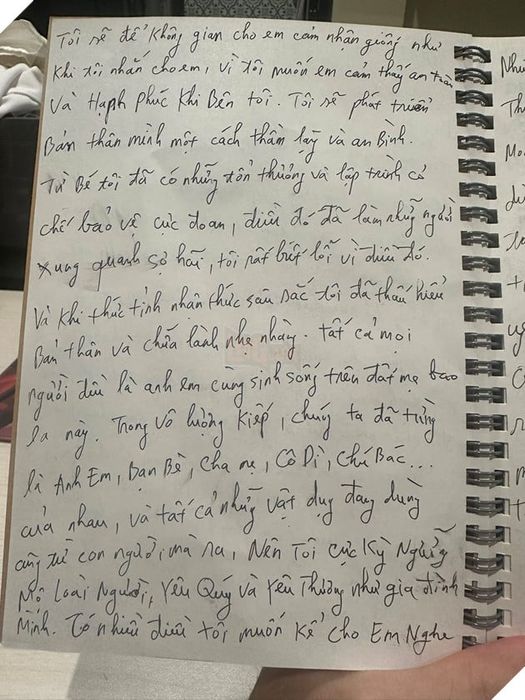 Tôi sẽ để Không gian cho em cảm nhận giống như
Khi tôi nhắn cho em, vì tôi muốn em cảm thấy an toàn
Và Hạnh Phúc Khi Bên tôi. Tôi sẽ phát triển
Bản thân mình một cách thầm lặng và an Bình.
Từ Bé tôi đã có những tổn thương và lập trình cơ
chế bảo vệ cực đoan, điều đó đã làm những người
xung quanh sợ hãi, tôi rất biết lỗi vì điều đó.
Và Khi thức tỉnh nhận thức sâu sắc tôi đã thấu hiểu
Bản thân và chữa lành nhẹ nhàng. Tất cả mọi
người đều là anh em cùng sinh sống trên đất mẹ bao
la này. Trong Vô lượng Kiếp, chúng ta đã từng
là Anh Em, Bạn Bè, Cha mẹ, Cô Dì, Chú Bác...
của nhau, và tất cả những vật dụng đang dùng
cũng từ con người mà ra, Nên Tôi cực Kỳ Ngưỡng
Mộ Loài Người, Yêu Quý và Yêu Thương như gia đình
Mình. Có nhiều điều tôi muốn Kể cho Em Nghe